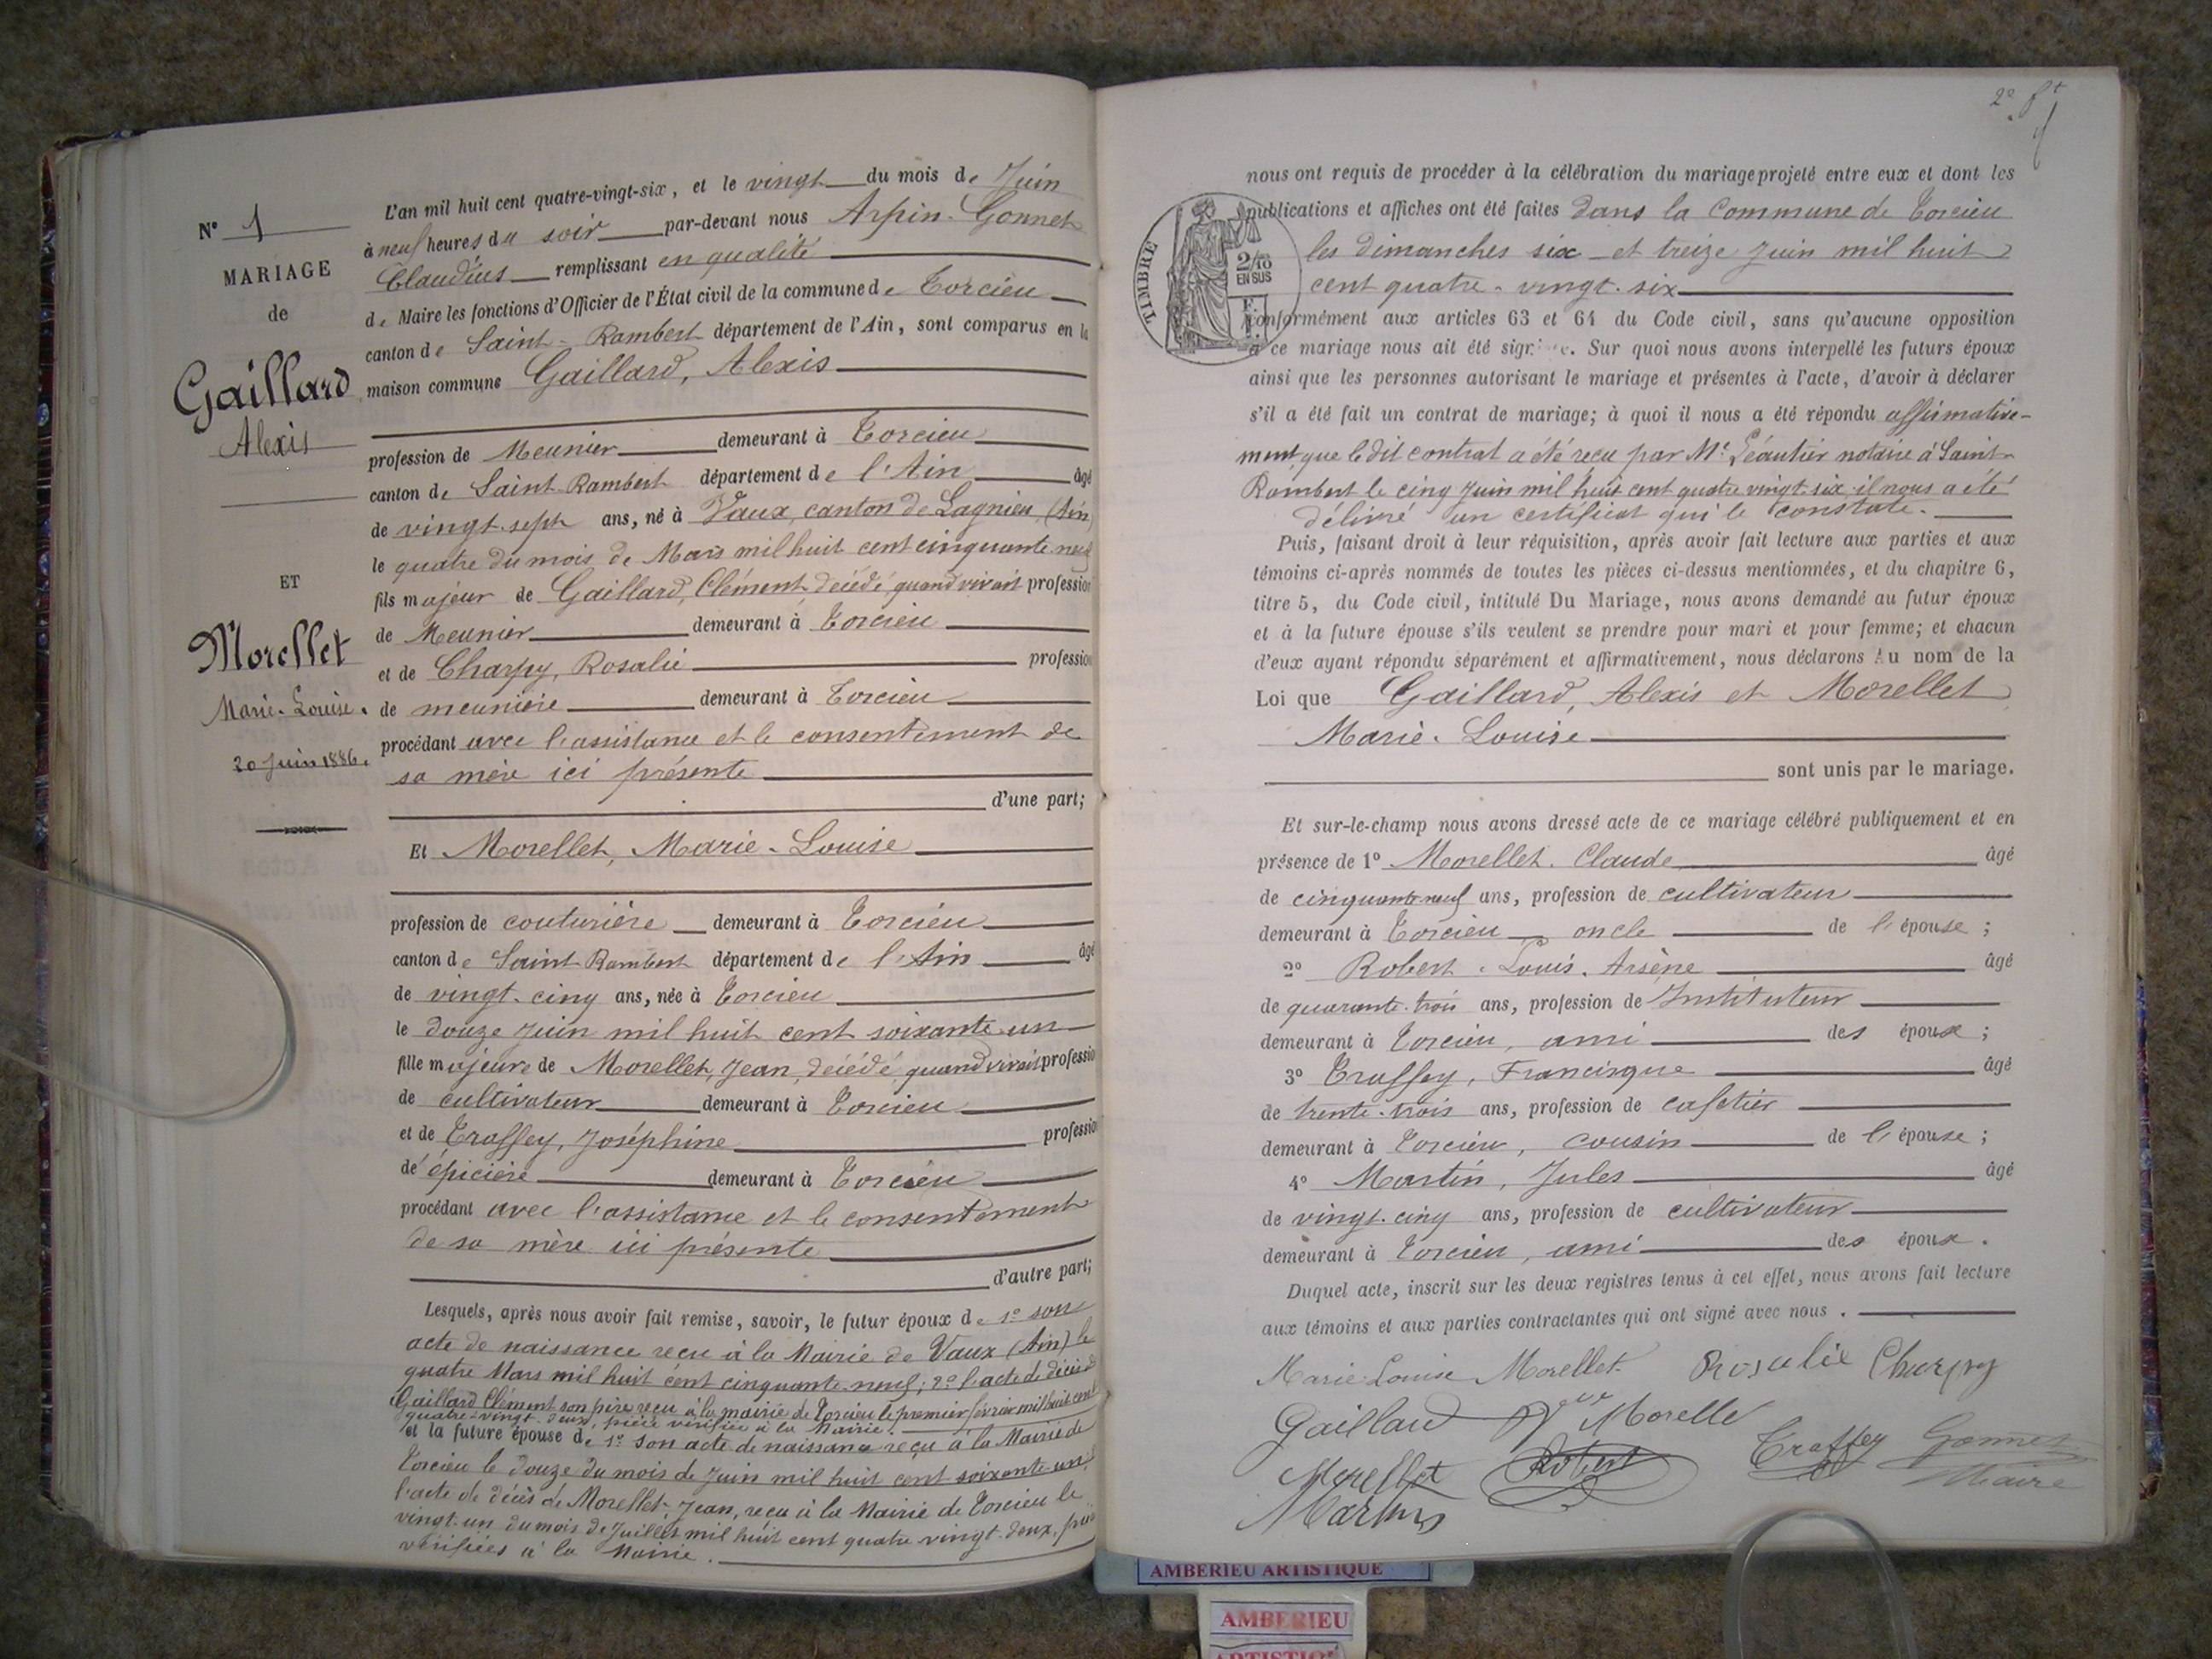 N° 1
MARIAGE
de
Gaillard
Alexis
ET
Morellet
Marie-Louise.
20 Juin 1886.
L'an mil huit cent quatre-vingt-six, et le vingt du mois de Juin
à neuf heures du soir par-devant nous Arpin-Gonnet
Claudius remplissant en qualité
de Maire les fonctions d'Officier de l'État civil de la commune de Torcieu
canton de Saint-Rambert département de l'Ain, sont comparus en la
maison commune Gaillard, Alexis
profession de Meunier demeurant à Torcieu
canton de Saint-Rambert département de l'Ain âgé
de vingt-sept ans, né à Vaux, canton de Lagnieu, (Ain)
le quatre du mois de Mars mil huit cent cinquante neuf
fils majeur de Gaillard, Clément, décédé, quand vivait profession
de Meunier demeurant à Torcieu
et de Charpy, Rosalie profession
de meunière demeurant à Torcieu
procédant avec l'assistance et le consentement de
sa mère ici présente
d'une part;
Et Morellet, Marie-Louise
profession de couturière demeurant à Torcieu
canton de Saint Rambert département de l'Ain âgé
de vingt-cinq ans, née à Torcieu
le douze Juin mil huit cent soixante-un
fille majeure de Morellet, Jean, décédé, quand vivait profession
de cultivateur demeurant à Torcieu
et de Traffey, Joséphine profession
de épicière demeurant à Torcieu
procédant avec l'assistance et le consentement
de sa mère ici présente
d'autre part;
Lesquels, après nous avoir fait remise, savoir, le futur époux de 1° son
acte de naissance reçu à la Mairie de Vaux (Ain) le
quatre Mars mil huit cent cinquante-neuf; 2° l'acte de décès de
Gaillard Clément son père reçu à la mairie de Torcieu le premier février mil huit cent
quatre-vingt-deux, pièce vérifiée à la Mairie.
et la future épouse de 1° son acte de naissance reçu à la Mairie de
Torcieu le douze du mois de Juin mil huit cent soixante-un
l'acte de décès de Morellet Jean, reçu à la Mairie de Torcieu le
vingt-un du mois de Juillet mil huit cent quatre vingt-deux,
vérifiées à la Mairie.
2°
nous ont requis de procéder à la célébration du mariage projeté entre eux et dont les
publications et affiches ont été faites dans la Commune de Torcieu
les dimanches six et treize Juin mil huit
cent quatre-vingt-six
TIMBRE
2/10
EN SUS
conformément aux articles 63 et 64 du Code civil, sans qu'aucune opposition
à ce mariage nous ait été signifiée. Sur quoi nous avons interpellé les futurs époux
ainsi que les personnes autorisant le mariage et présentes à l'acte, d'avoir à déclarer
s'il a été fait un contrat de mariage; à quoi il nous a été répondu affirmative-
ment, que ledit contrat a été reçu par Mt Léautier notaire à Saint-
Rambert le cinq Juin mil huit cent quatre vingt-six il nous a été
délivré un certificat qui le constate.
Puis, faisant droit à leur réquisition, après avoir fait lecture aux parties et aux
témoins ci-après nommés de toutes les pièces ci-dessus mentionnées, et du chapitre 6,
titre 5, du Code civil, intitulé Du Mariage, nous avons demandé au futur époux
et à la future épouse s'ils veulent se prendre pour mari et pour femme; et chacun
d'eux ayant répondu séparément et affirmativement, nous déclarons Au nom de la
Loi que Gaillard, Alexis et Morellet
Marie-Louise
sont unis par le mariage.
Et sur-le-champ nous avons dressé acte de ce mariage célébré publiquement et en
présence de 1° Morellet. Claude âgé
de cinquante neuf ans, profession de cultivateur
demeurant à Torcieu oncle de l'épouse;
2° Robert. Louis. Arsène âgé
de quarante-trois ans, profession de Instituteur
demeurant à Torcieu, ami des époux;
3° Traffey, Francisque âgé
de trente-trois ans, profession de cafetier
demeurant à Torcieu, cousin de l'épouse;
4° Martin, Jules âgé
de vingt-cinq ans, profession de cultivateur
demeurant à Torcieu, ami des époux.
Duquel acte, inscrit sur les deux registres tenus à cet effet, nous avons fait lecture
aux témoins et aux parties contractantes qui ont signé avec nous.
Marie Louise Morellet Rosalie Charpy
Gaillard Vve Morelle
Morellet Robert Traffey Gonnet
Martin Maire
AMBERIEU ARTISTIQUE
AMBERIEU
ARTISTIQUE